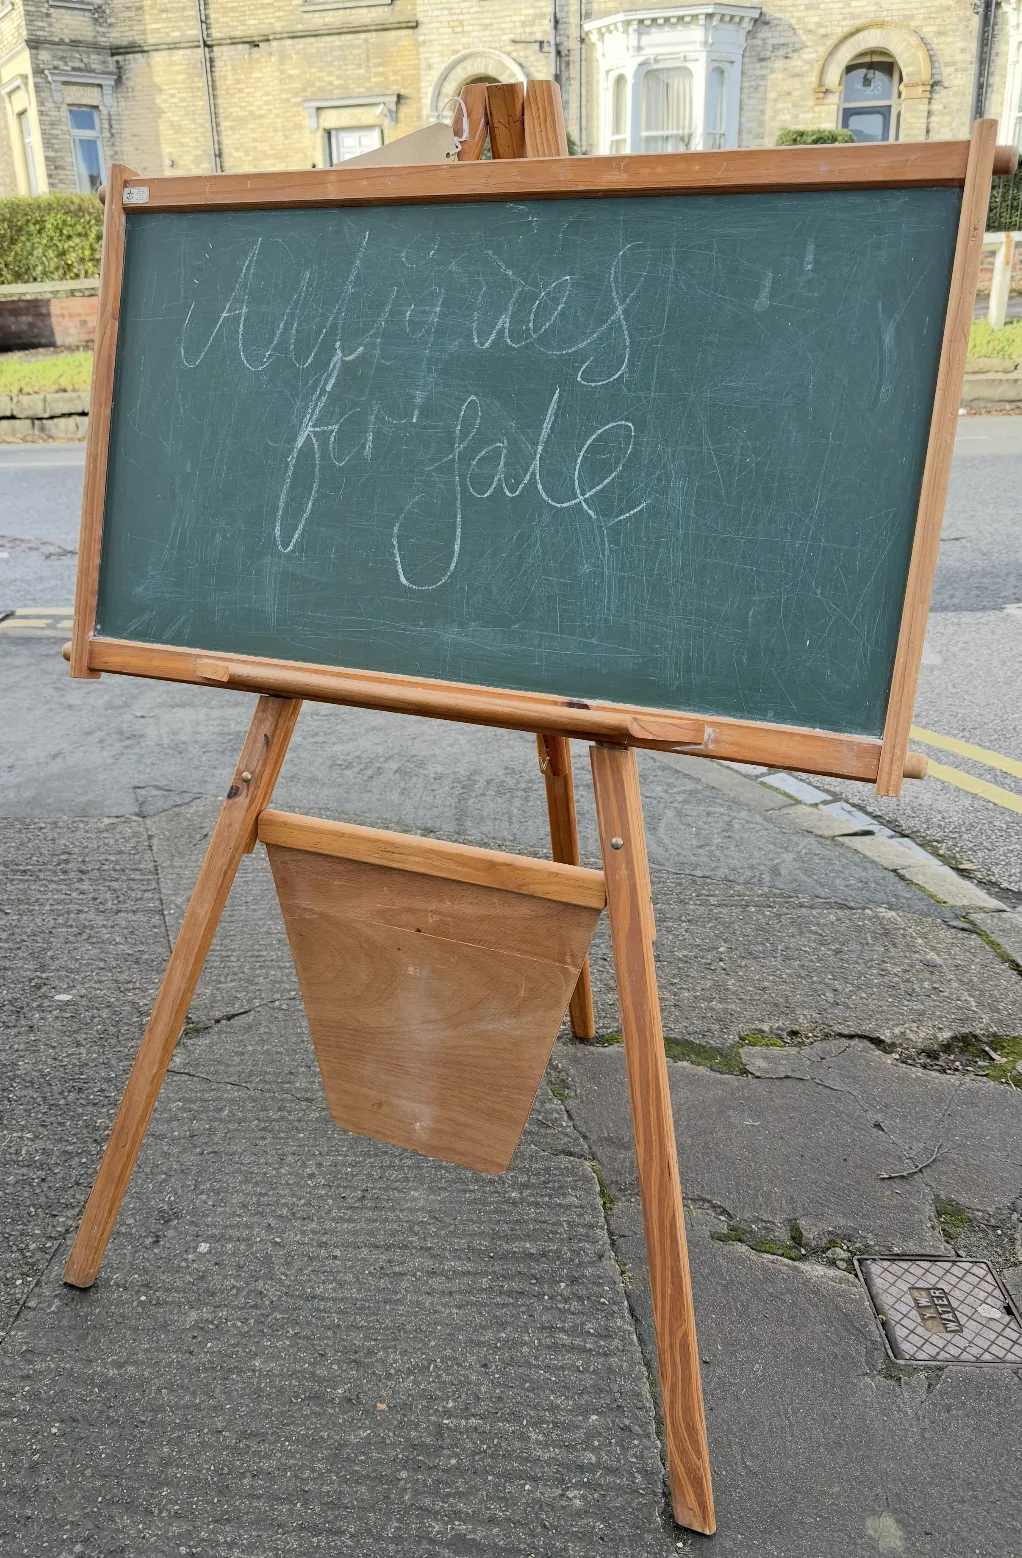 Antiques
for Sale
WATER